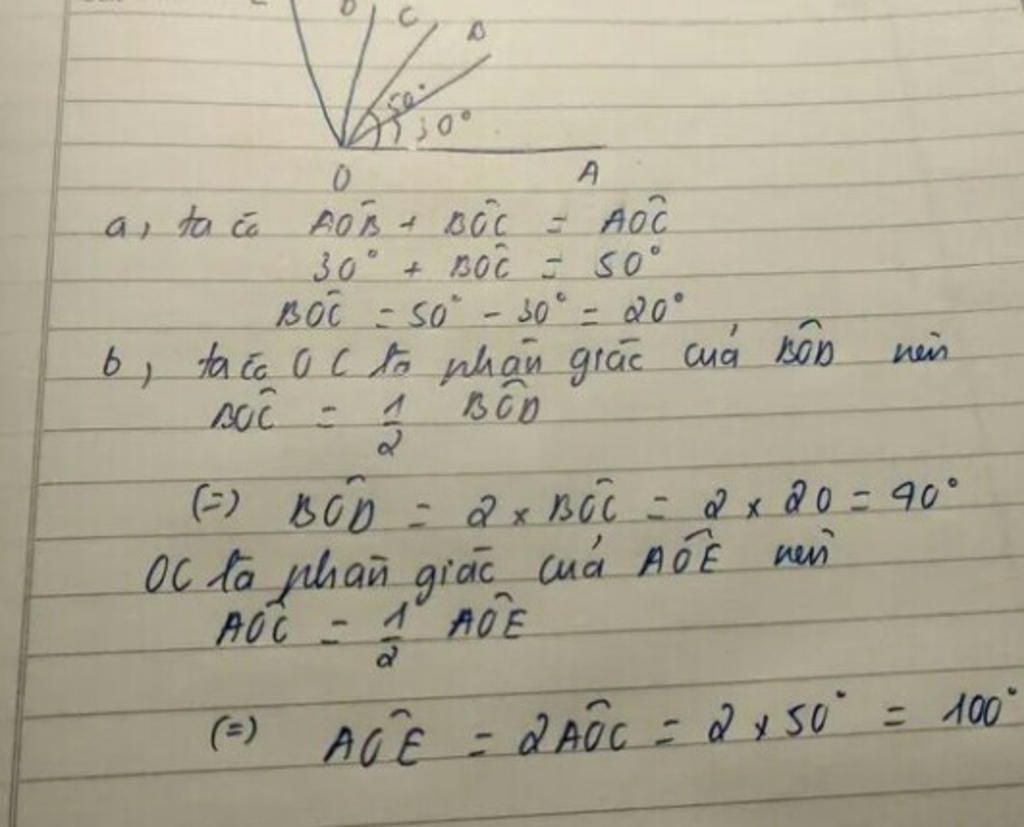 C
B
50°
30°
O
A
a, ta có AÔB + BÔC = AÔC
30° + BÔC = 50°
BÔC = 50° - 30° = 20°
b, ta có OC là phân giác của BÔD nên
BÔC = 1/2 BÔD
(=) BÔD = 2 x BÔC = 2 x 20 = 40°
OC là phân giác của AÔE nên
AÔC = 1/2 AÔE
(=) AÔE = 2AÔC = 2 x 50° = 100°